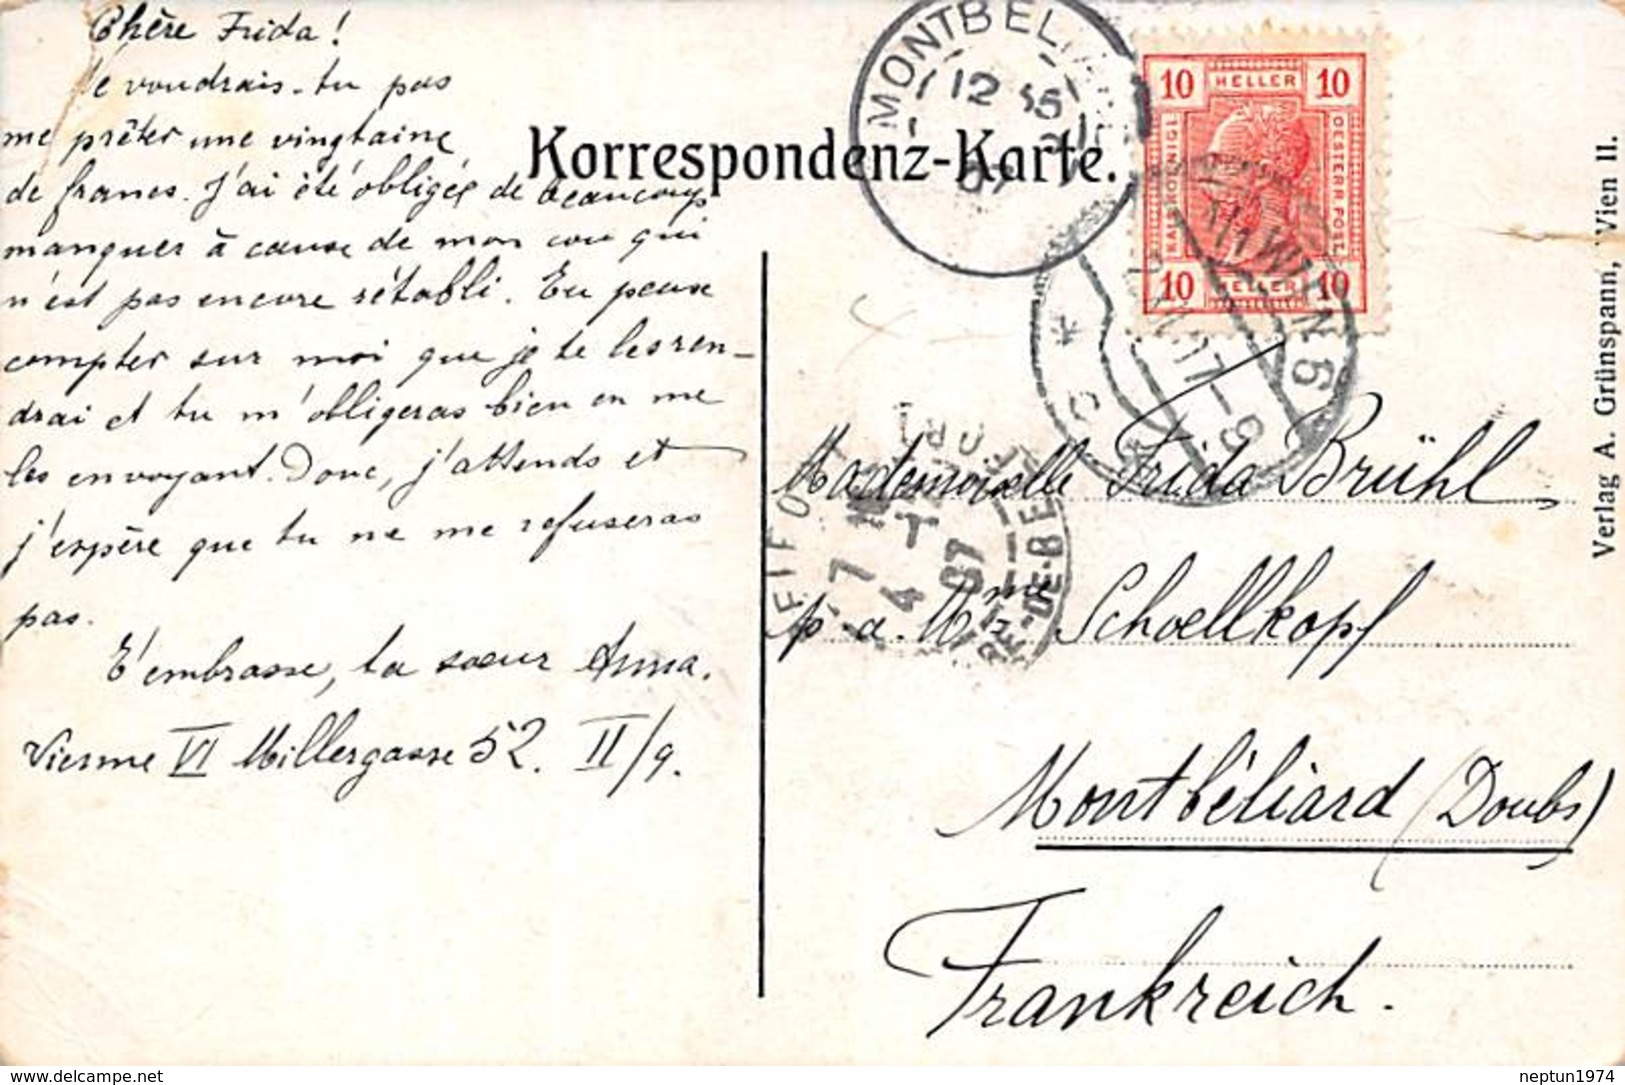 Chère Frida!
Ne voudrais-tu pas
me prêter une vingtaine
de francs. J'ai été obligée de beaucoup
manquer à cause de mon cou qui
n'est pas encore rétabli. Tu peux
compter sur moi que je te les ren-
drai et tu m'obligeras bien en me
les envoyant. Donc, j'attends et
j'espère que tu ne me refuseras
pas.
T'embrasse, ta sœur Anna.
Vienne VI Millergasse 52. II/9.
Korrespondenz-Karte.
MONTBELIARD
12 35
07
10 HELLER 10
KAIS. KÖNIGL.
OESTERR. POST.
10 HELLER 10
1/1 WIEN
17-
7
4
07
Mademoiselle Frida Brühl
p. a. Mme Schoellkopf
Montbéliard (Doubs)
Frankreich.
Verlag A. Grünspann, Wien II.
delcampe.net
neptun1974